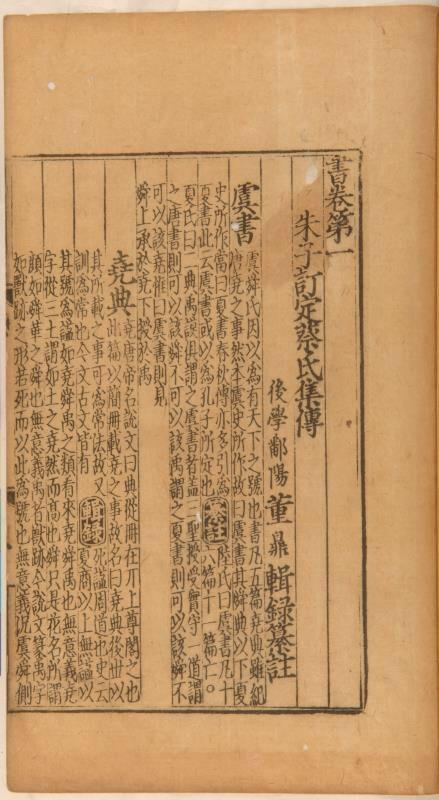 書卷第一
朱子訂定蔡氏集傳
後學鄱陽董鼎輯録纂註
虞書
虞舜氏因以為有天下之號也書凡五篇堯典雖紀
唐堯之事然本虞史所作故曰虞書其舜典以下夏
史所作當曰夏書春秋傳亦多引為
夏書此云虞書或以為孔子所定也
纂註
陸氏曰虞書凡十
六篇十一篇亡○
夏氏曰二典禹謨俱謂之虞書者蓋三聖授受實守一道謂
之唐書則可以該舜不可以該禹謂之夏書則可以該舜不
可以該堯惟曰虞書則見
舜上承於堯下授於禹
堯典
堯唐帝名說文曰典從冊在丌上尊閣之也
此篇以簡冊載堯之事故名曰堯典後世以
其所載之事可為常法故又
訓為常也今文古文皆有
輯録
死謚周道也史云
夏商以上無謚以
其號為謚如堯舜禹之類看來堯舜禹也無意義堯
字從三土謂如土之堯然而高也舜只是花名所謂
顏如舜華之舜也無意義禹者獸跡今說文篆禹字
如獸跡之形若死而以此為號也無意義況虞舜側